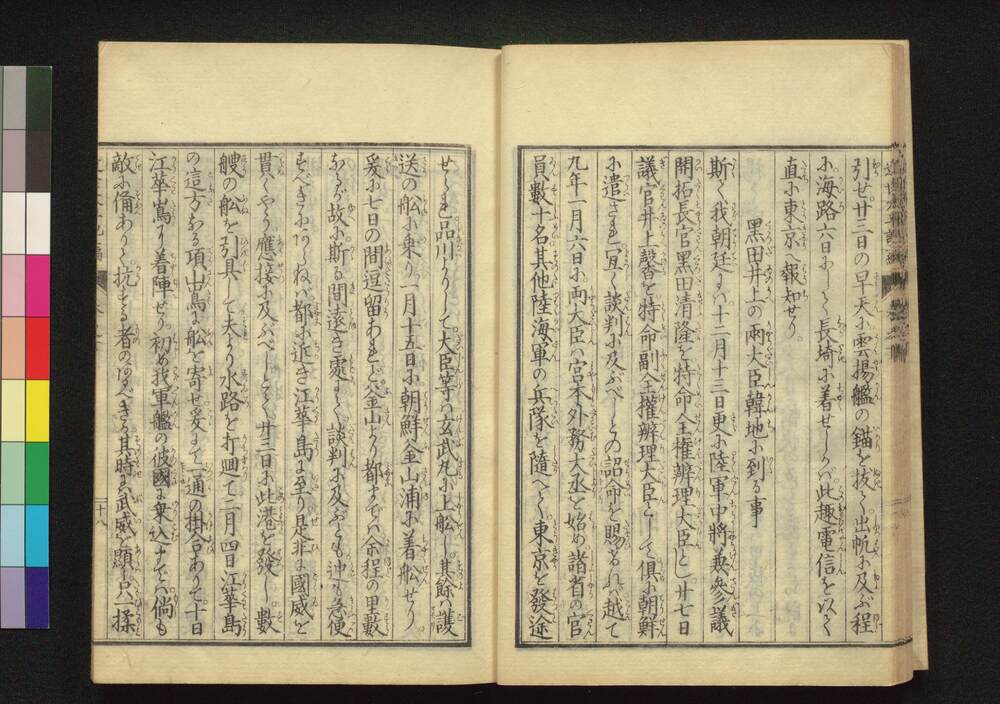 引せ廿三日の早天に雲揚艦の錨を抜て出帆に及ぶ程
に海路六日にして長埼に着せしかバ此趣電信を以て
直に東京へ報知せり
黒田井上の兩大臣韓地に到る事
斯て我朝廷にハ十二月十三日更に陸軍中將兼參議
開拓長官黒田清隆を特命全權辨理大臣とし廿七日
議官井上馨を特命副全權辨理大臣として俱に朝鮮
に遣され宜く談判に及ぶべしとの詔命を賜るれバ越て
九年一月六日に兩大臣ハ宮本外務大丞を始め諸省の官
員數十名其他陸海軍の兵隊を隨へて東京を發途
せられ品川よりして大臣等ハ玄武丸に上船し其餘ハ護
送の船に乘り一月十五日に朝鮮金山浦に着船せり
爰に七日の間逗留あれど金山より都までハ余程の里數
なるが故に斯る間遠き處にて談判に及ぶとも迚も急便
すべきにあらねバ都に近き江華島に至り是非に國威を
貫くやう應接に及ぶべしとて廿三日に此港を發し數
艘の船を引具して夫より水路を打廻て二月四日江華島
の這方なる項山島に船を寄せ爰にて一通の掛合ありて十日
江華嶌に着陣せり初め我軍艦の彼國に乘込ことハ倘も
敵に備ありて抗する者のあるべきか其時に武威を顯し只一揉
十八